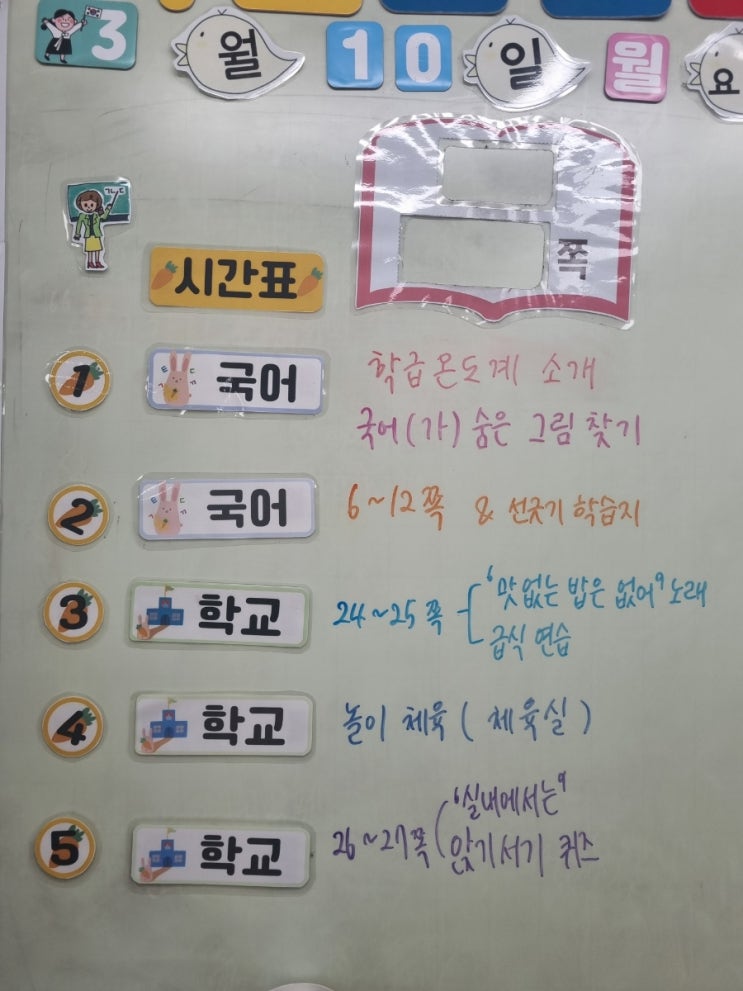 3 월 10 일 월 요
쪽
시간표
1 국어 학급온도계 소개
국어(가) 숨은 그림 찾기
2 국어 6~12쪽 & 선긋기 학습지
3 학교 24~25쪽 '맛없는 밥은 없어' 노래
급식 연습
4 학교 놀이 체육 ( 체육실 )
5 학교 26~27쪽 '실내에서는'
앉기서기 퀴즈